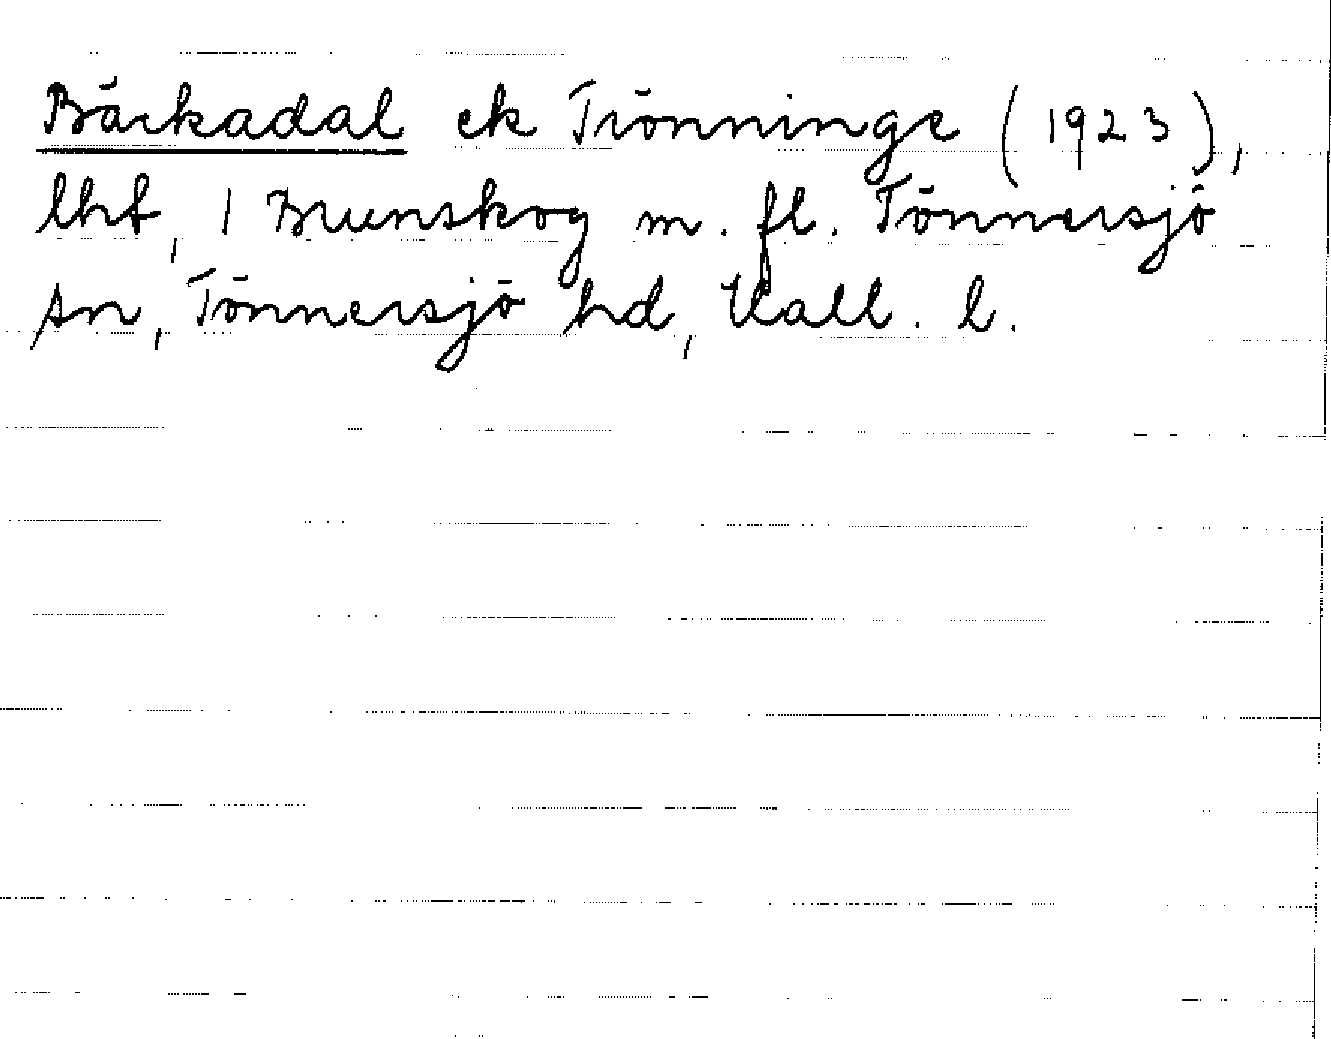 Bärkadal ek Trönninge (1923),
lht, 1 Brunskog m. fl. Tönnersjö
sn, Tönnersjö hd, Hall. l.